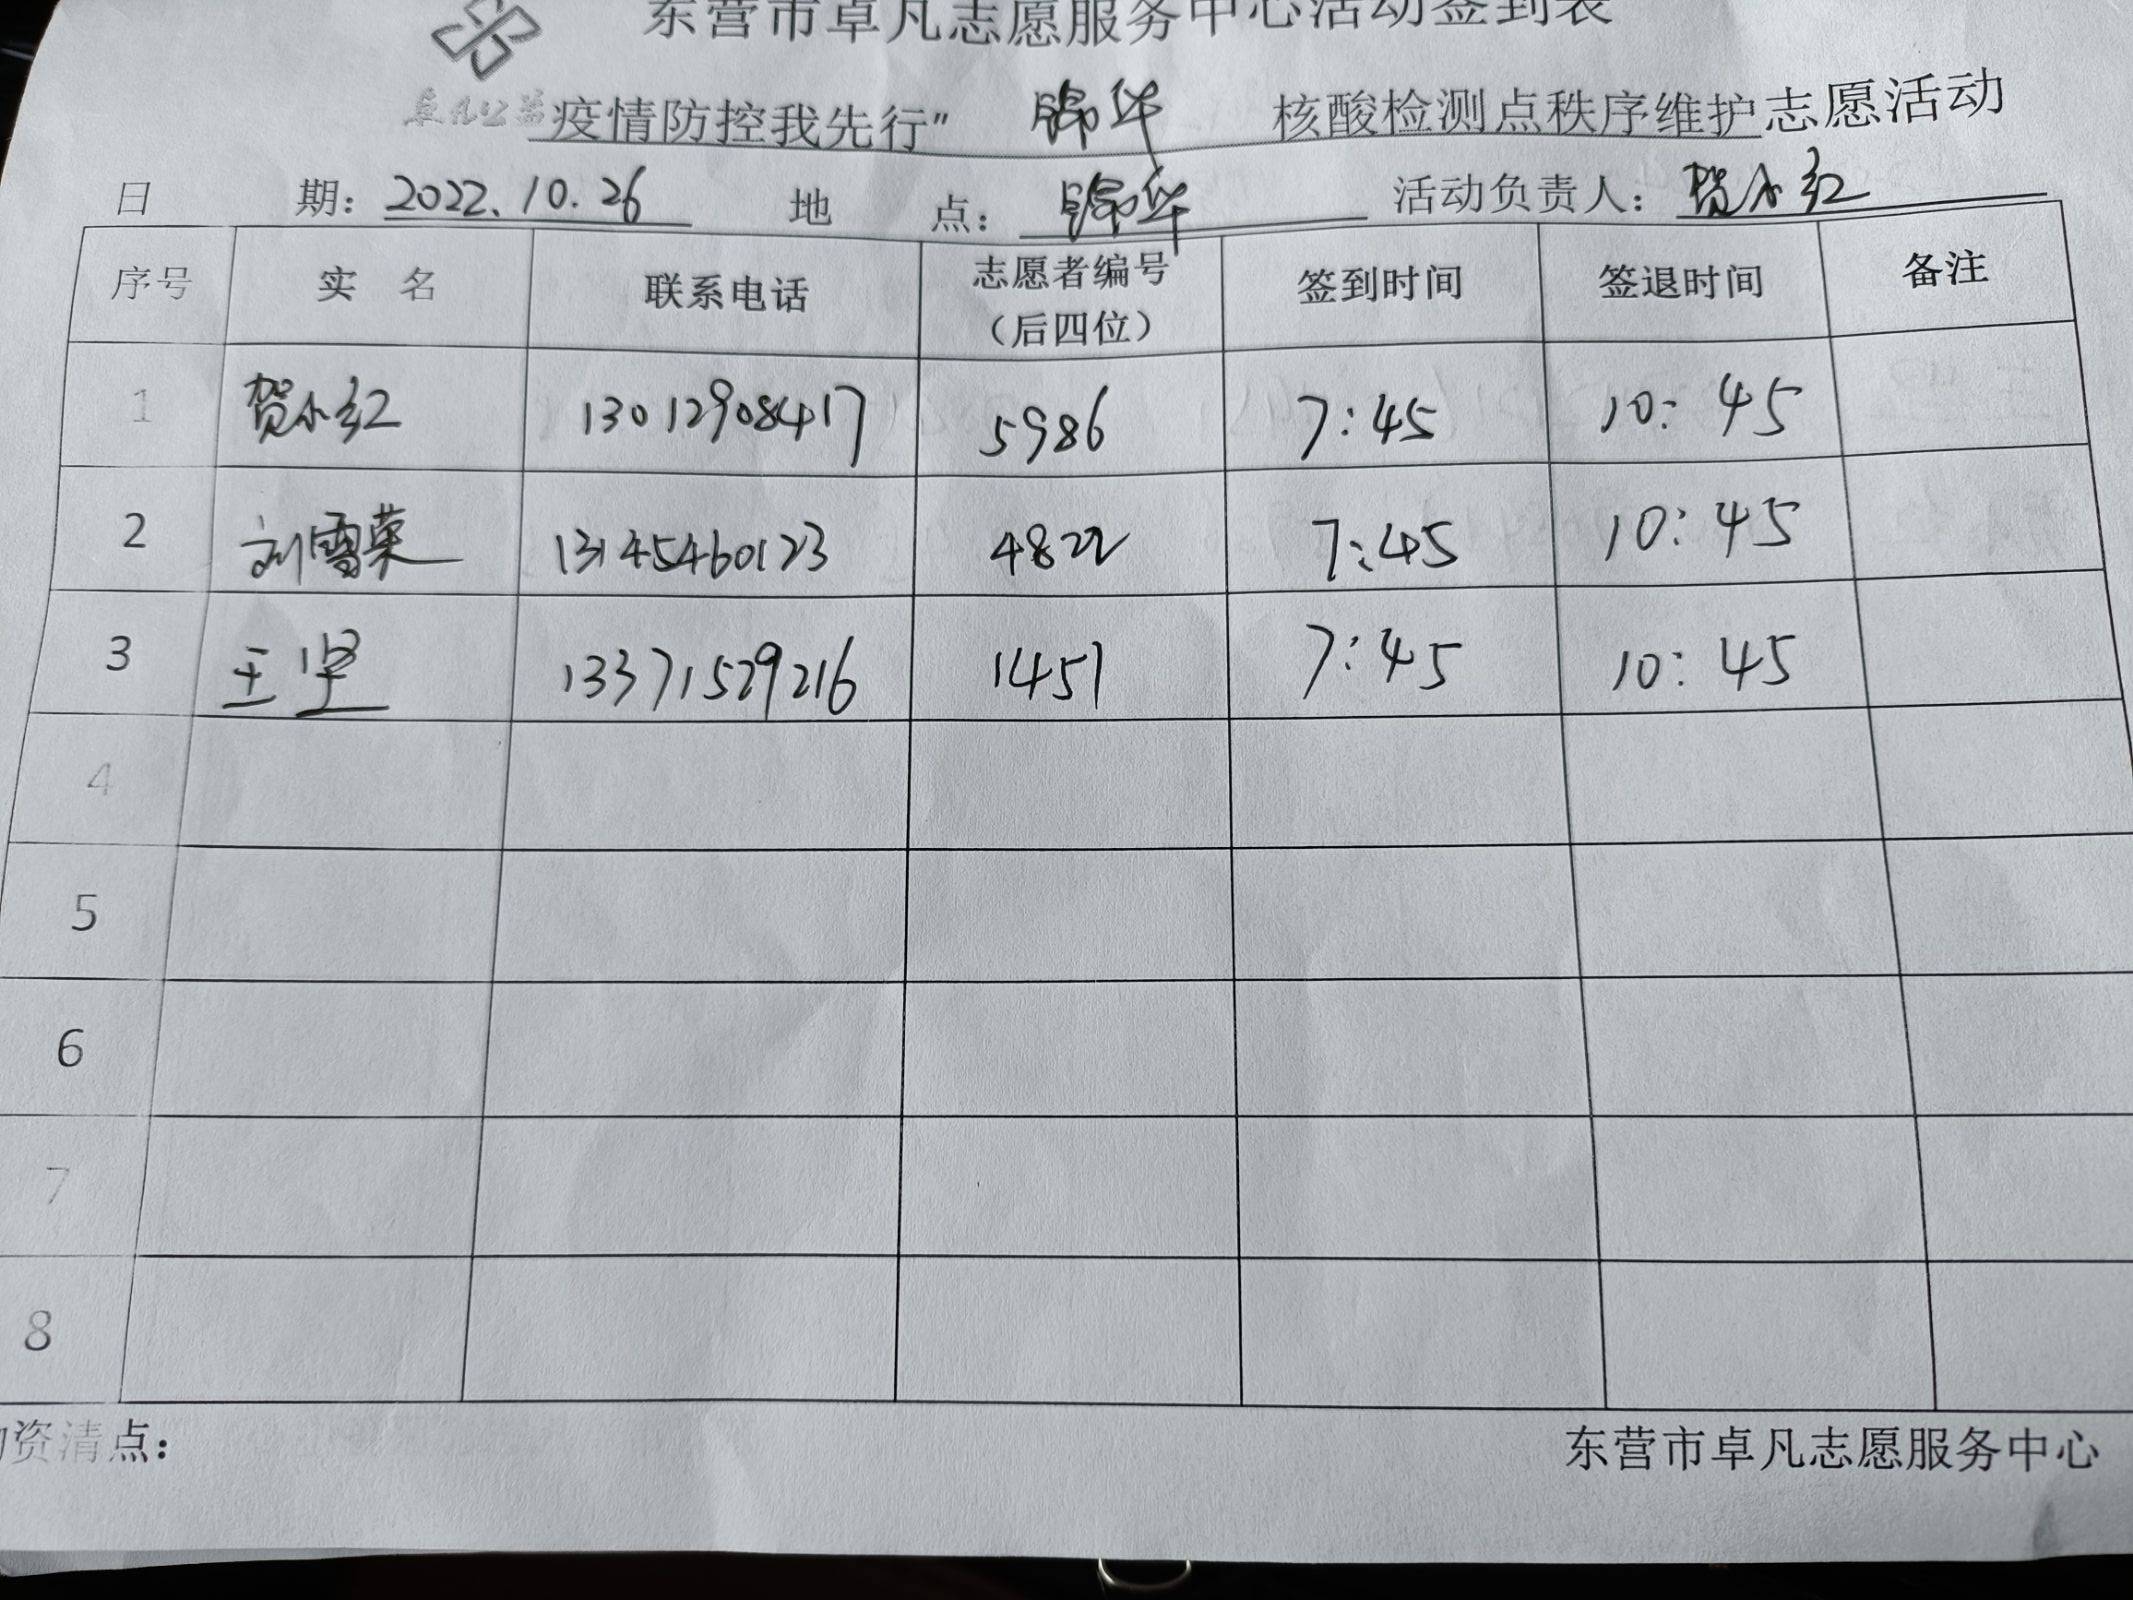 东营市卓凡志愿服务中心活动签到表
卓凡公益
疫情防控我先行" 锦华 核酸检测点秩序维护志愿活动
日 期：2022.10.26 地 点：锦华 活动负责人：贺小红
序号 实 名 联系电话 志愿者编号（后四位） 签到时间 签退时间 备注
1 贺小红 13012908417 5986 7:45 10:45
2 刘雪荣 13145460123 4822 7:45 10:45
3 王坚 13371529216 1451 7:45 10:45
4
5
6
7
8
物资清点： 东营市卓凡志愿服务中心